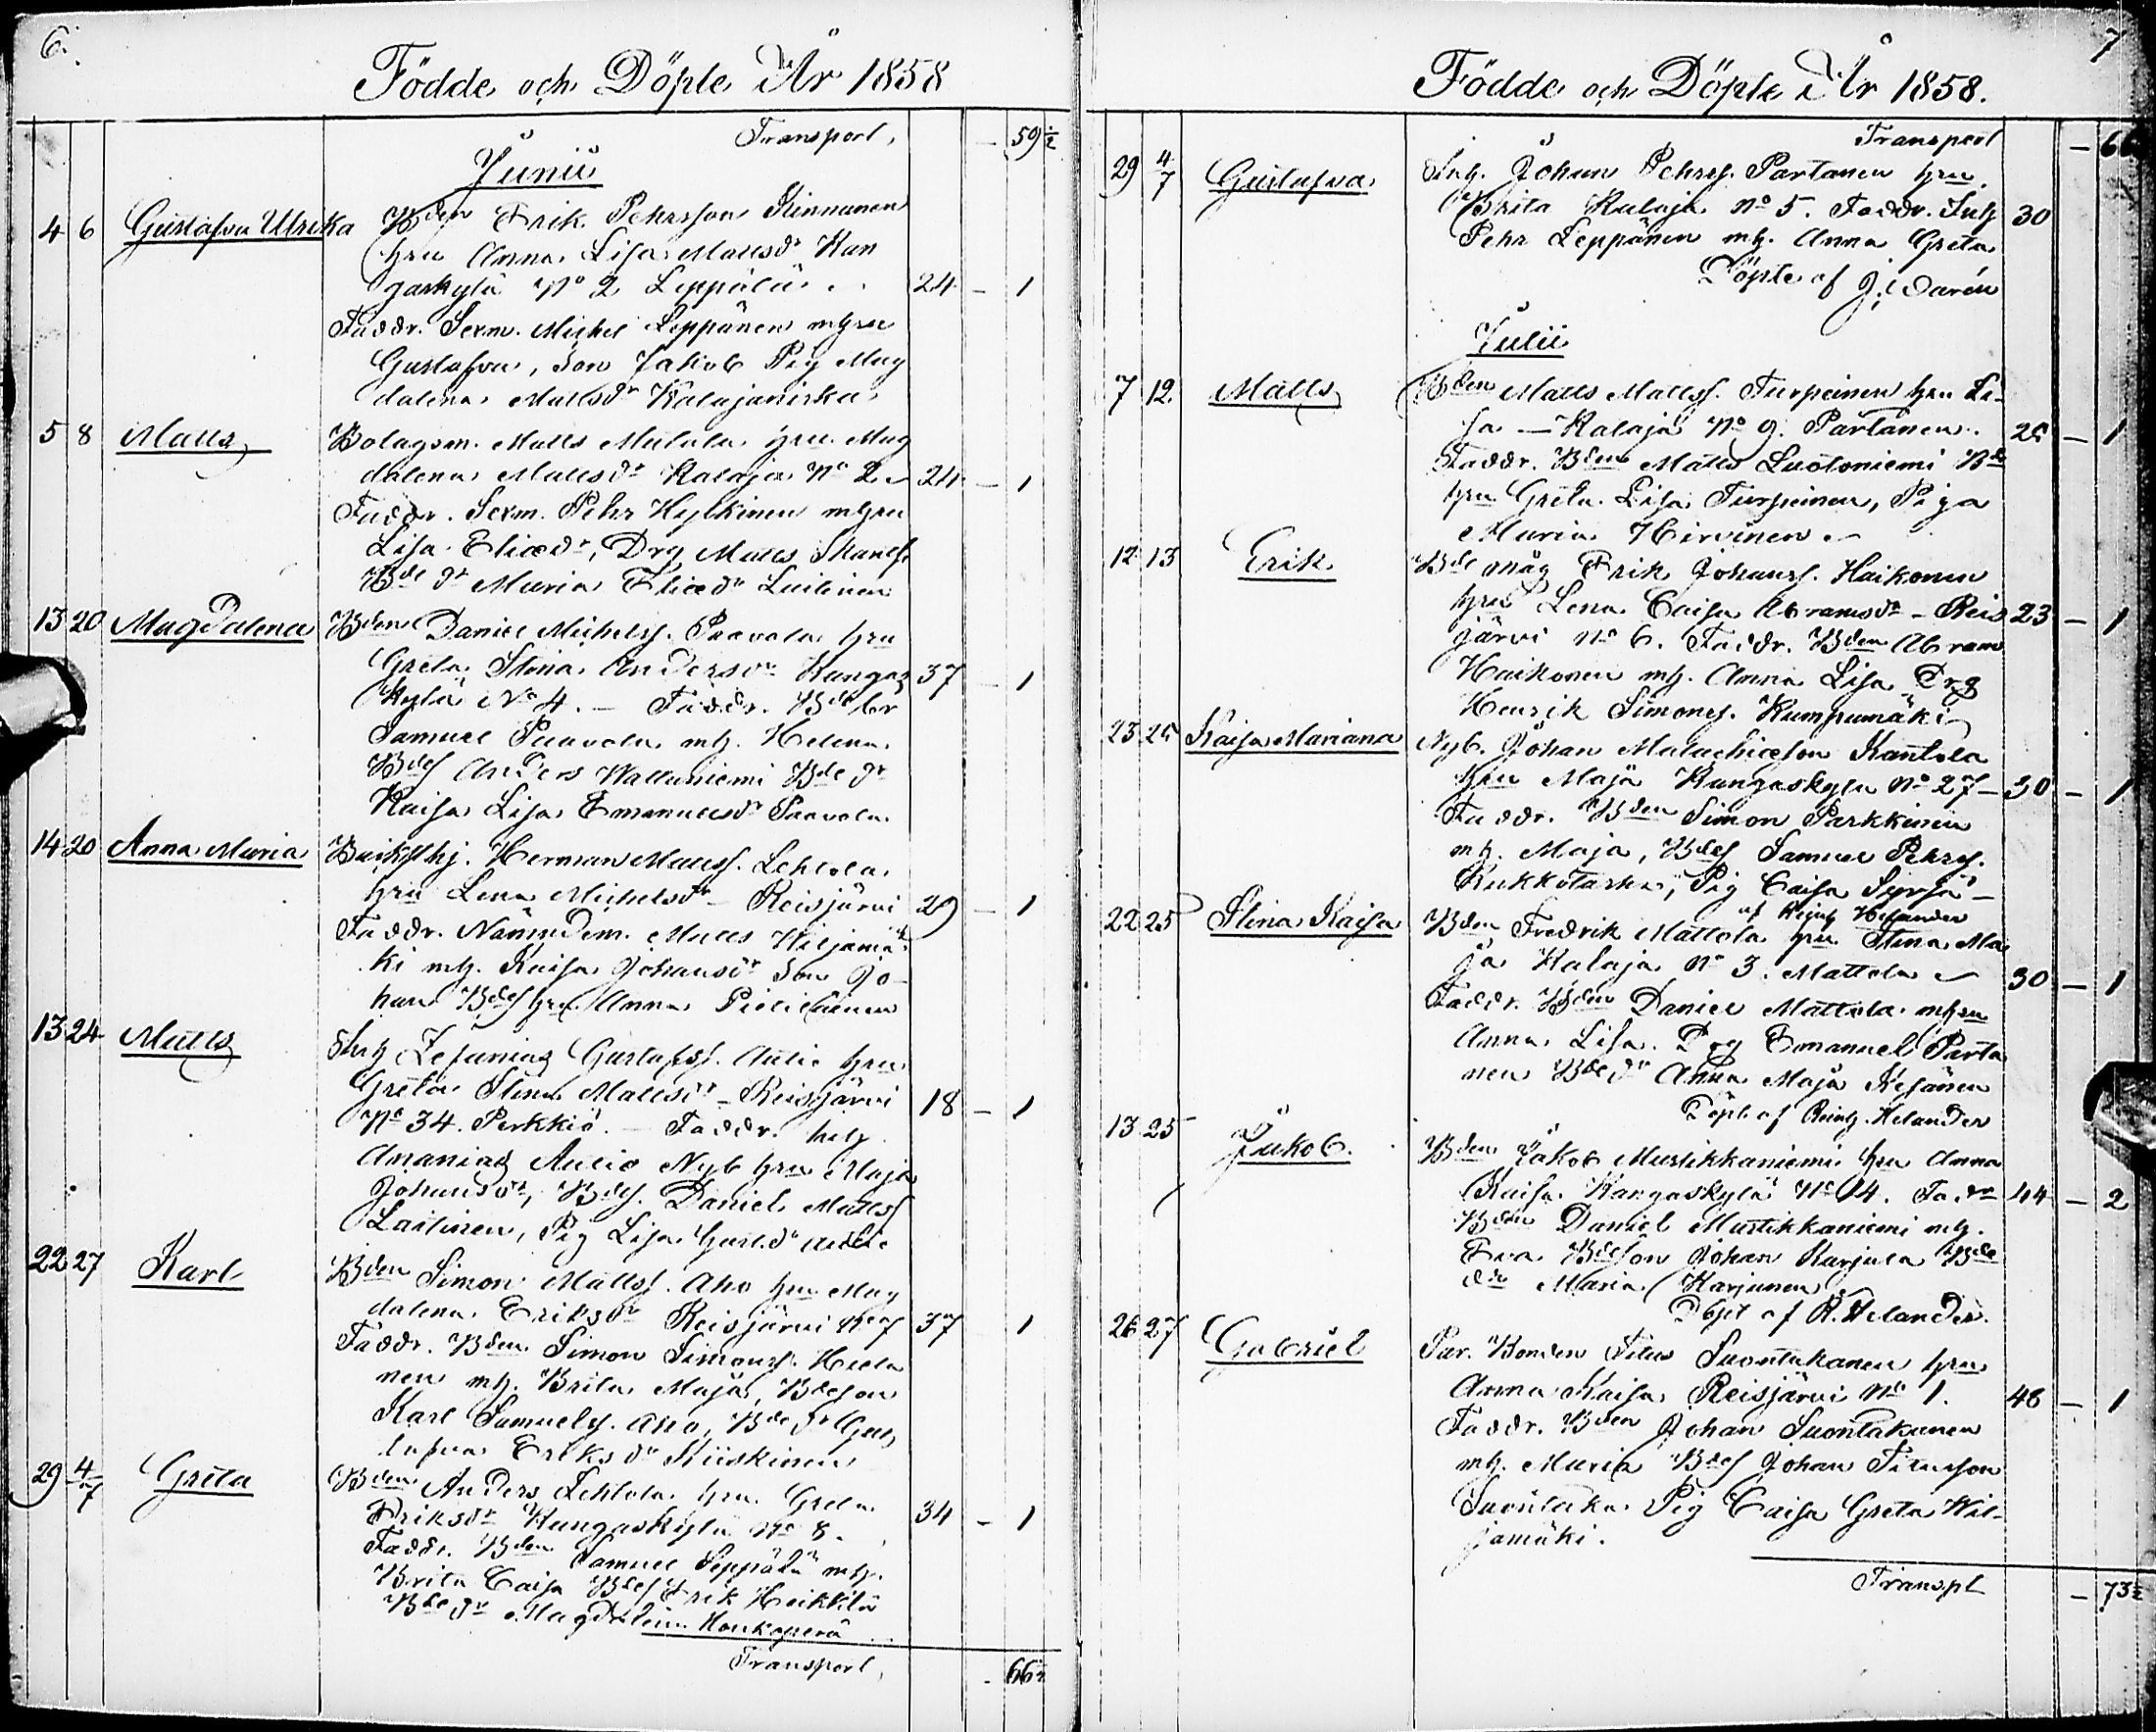 6.
Födde och Döpte År 1858
Transport, - 59½
Junii
4 6 Gustafva Ulrika Bden Erik Pehrsson Kinnunen
hru Anna Lisa Mattsdr Kan
gaskylä No 2 Leppälä 24 - 1
Faddr. Sexm. Michel Leppänen mhru
Gustafva, Son Jakob Pig Mag
dalena Mattsdr Kalajaniska
5 8 Matts Bolagsm. Matts Mulola hru Mag
dalena Mattsdr Kalaja No 2 24 - 1
Faddr. Sexm. Pehr Hylkinen mhru
Lisa Eliædr, Drg Matts
Bde dr Maria Eliædr Laitinen
13 20 Magdalena Bden Daniel Michelss. Paavola hru
Greta Stina Andersdr Kangas 37 - 1
kylä No 4. — Faddr. Bde br
Samuel Paavola mh. Helena
Bdes Anders Wattuniemi Bde dr
Kaisa Lisa Emanuelsdr Paavola.
14 20 Anna Maria Backsthj. Herman Mattss. Lehtola
hru Lena Michelsdr - Reisjärvi 29 - 1
Faddr. Nämndem. Matts Hiljamä
ki mh. Kaisa Johansdr Son Jo-
han Bdes hru Anna Pietiläinen
13 24 Matts Inh Zefanias Gustafss. Autio hru
Greta Stina Mattsdr - Reisjärvi 18 - 1
No 34. Perkkiö. - Faddr. Inh
Ananias Autio Nyb hru Maja
Johansdr, Bdes. Daniel Mattss
Laitinen, Pig Lisa Gust.dr Autio
22 27 Karl Bden Simon Mattss. Aho hru Mag
dalena Eriksdr Reisjärvi No 7 37 1
Faddr. Bden Simon Simonss. Hieta
nen mh. Brita Maja, Bdeson
Karl Samuelss. Aho, Bde dr Gus
tafva Eriksdr Kiiskinen
29 4/7 Greta Bden Anders Lehtola hru Greta
Eriksdr Kangaskylä No 8. 34 - 1
Faddr. Bden Samuel Seppälä mh.
Brita Caisa Bdes Erik Heikkilä
Bde dr Magdalena Honkaperä
Transport, - 66½
7
Födde och Döpte År 1858.
Transport - 66
29 4/7 Gustafva Inh. Johan Pehrss. Partanen hru
Brita Kalaja No 5. Faddr. Inh 30
Pehr Leppänen mh. Anna Greta
Döpte af J. Durén
Julii
7 12. Matts Bden Matts Mattss. Turpeinen hru Li-
sa — Kalaja No 9. Partanen. 25 - 1
Faddr. Bden Matts Luotoniemi Bde
hru Greta Lisa Turpeinen, Piga
Maria Hirvinen
12 13 Erik Bde måg Erik Johanss. Haikonen
hru Lena Caisa Abramsdr - Reis 23 - 1
järvi No 6. Faddr. Bden Abram
Haikonen mh. Anna Lisa Drg
Henrik Simonss. Kumpumäki
23 25 Kaisa Mariana Nyb. Johan Malachiæson Kantola
hru Maja Kangaskylä No 27 - 30 - 1
Faddr. Bden Simon Parkkinen
mh. Maja, Bdes Samuel Pehrss.
Kukkotaska, Pig Caisa Syrjä -
af Reinh Helander
22 25 Stina Kaisa Bden Fredrik Mattola hru Stina Ma
ja Kalaja No 3. Mattola 30 - 1
Faddr. Bden Daniel Mattola mhru
Anna Lisa. Drg Emanuel Parta
nen Bde dr Anna Maja Kesänen
Döpt af Reinh. Helander
13 25 Jakob. Bden Jakob Mustikkaniemi hru Anna
Kaisa Kangaskylä No 14. Faddr 44 - 2
Bden Daniel Mustikkaniemi mh.
Eva Bdeson Johan Karjula Bde
dr Maria Karjunen
Döpt af R. Helander.
26 27 Gabriel Par. Bonden Titus Suontakanen hru
Anna Kaisa Reisjärvi No 1. 48 - 1
Faddr. Bden Johan Suontakanen
mh. Maria Bdes Johan Titusson
Suontaka Pig Caisa Greta Hil-
jamäki.
Transpt - 73½